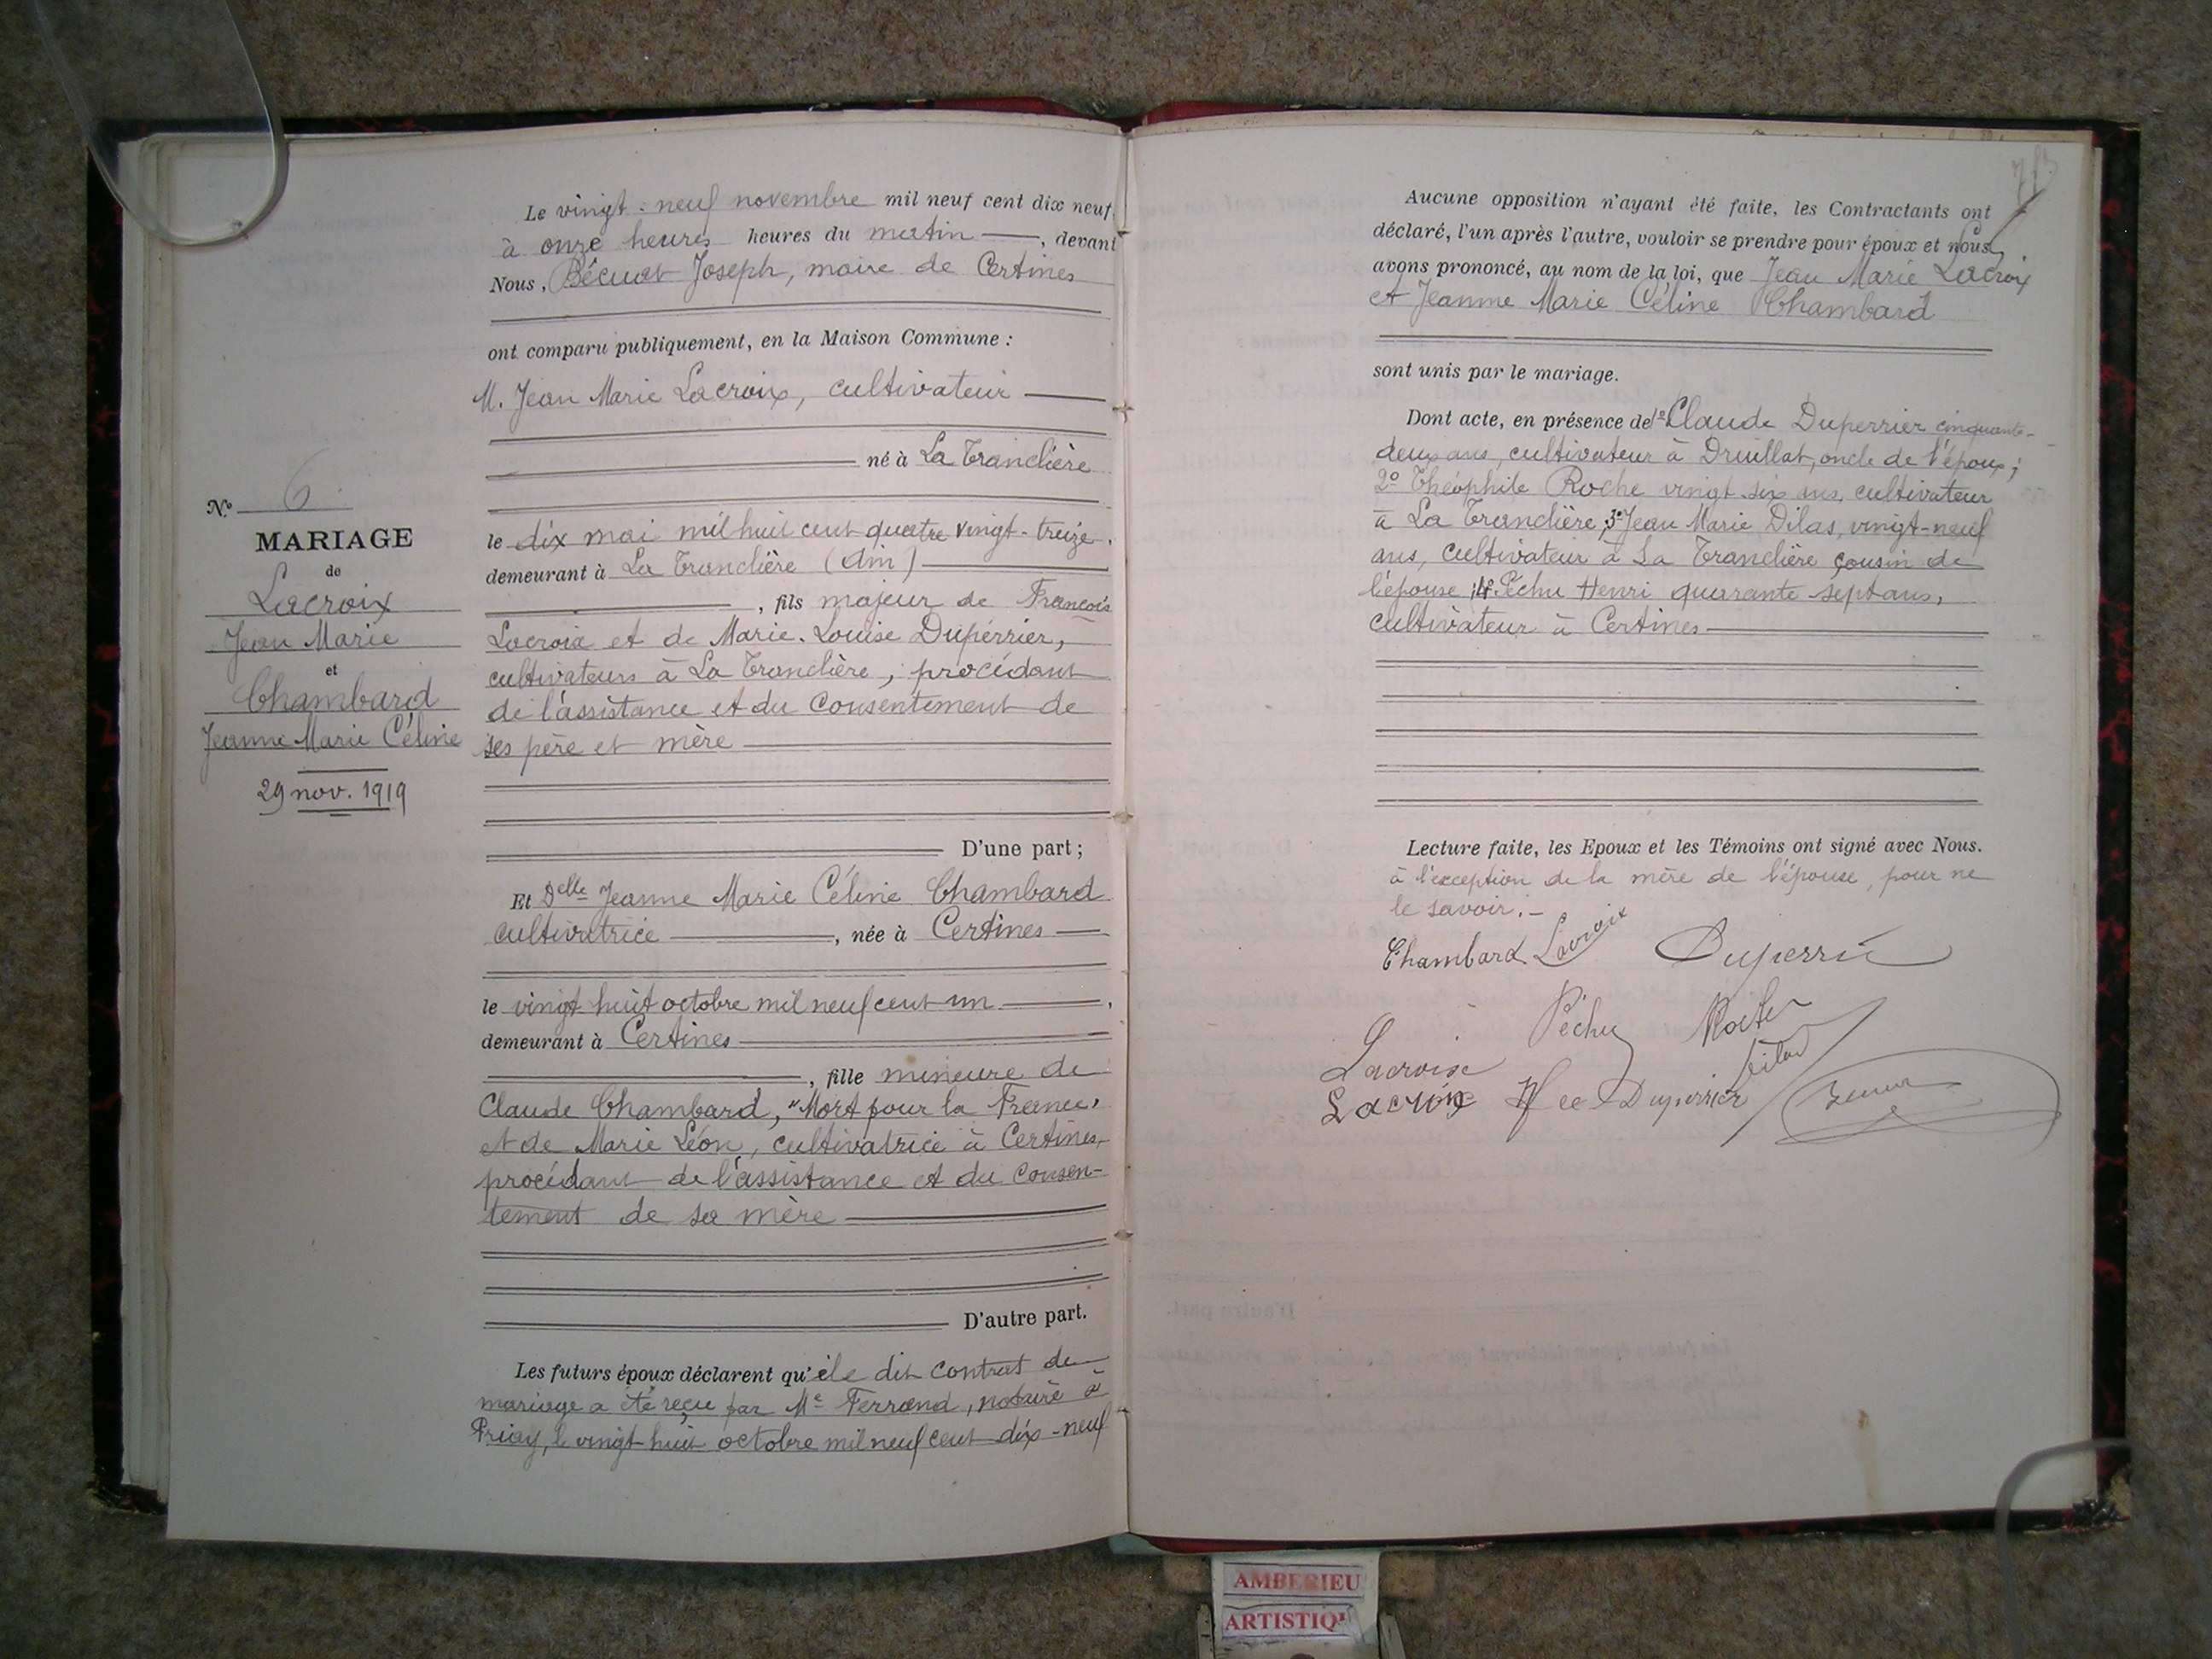 N° 6
MARIAGE
de
Lacroix
Jean Marie
et
Chambard
Jeanne Marie Céline
29 nov. 1919
Le vingt-neuf novembre mil neuf cent dix neuf
à onze heures heures du matin, devant
Nous, Joseph, maire de Certines
ont comparu publiquement, en la Maison Commune :
M. Jean Marie Lacroix, cultivateur
né à La Tranclière
le dix mai mil huit cent quatre vingt-treize,
demeurant à La Tranclière (Ain)
, fils majeur de François
Lacroix et de Marie-Louise Dupérrier,
cultivateurs à La Tranclière, procédant
de l'assistance et du consentement de
ses père et mère
D'une part ;
Et Delle Jeanne Marie Céline Chambard
cultivatrice, née à Certines
le vingt huit octobre mil neuf cent un,
demeurant à Certines
, fille mineure de
Claude Chambard, "Mort pour la France,
et de Marie Léon, cultivatrice à Certines,
procédant de l'assistance et du consen-
tement de sa mère
D'autre part.
Les futurs époux déclarent qu' dit contrat de
mariage a été reçu par Me Ferrand, notaire à
Priay, le vingt-huit octobre mil neuf cent dix-neuf
Aucune opposition n'ayant été faite, les Contractants ont
déclaré, l'un après l'autre, vouloir se prendre pour époux et nous
avons prononcé, au nom de la loi, que Jean Marie Lacroix
et Jeanne Marie Céline Chambard
sont unis par le mariage.
Dont acte, en présence de 1° Claude Duperrier cinquante-
deux ans, cultivateur à Druillat, oncle de l'époux ;
2° Théophile Roche vingt-six ans, cultivateur
à La Tranclière, 3° Jean Marie Dilas, vingt-neuf
ans, cultivateur à La Tranclière cousin de
l'épouse ; 4° Péchu Henri quarante-sept ans,
cultivateur à Certines
Lecture faite, les Epoux et les Témoins ont signé avec Nous.
à l'exception de la mère de l'épouse, pour ne
le savoir.-
Chambard Lacroix Duperrié
Péchu
Lacroix
Lacroix Duperrier
AMBERIEU
ARTISTIQU